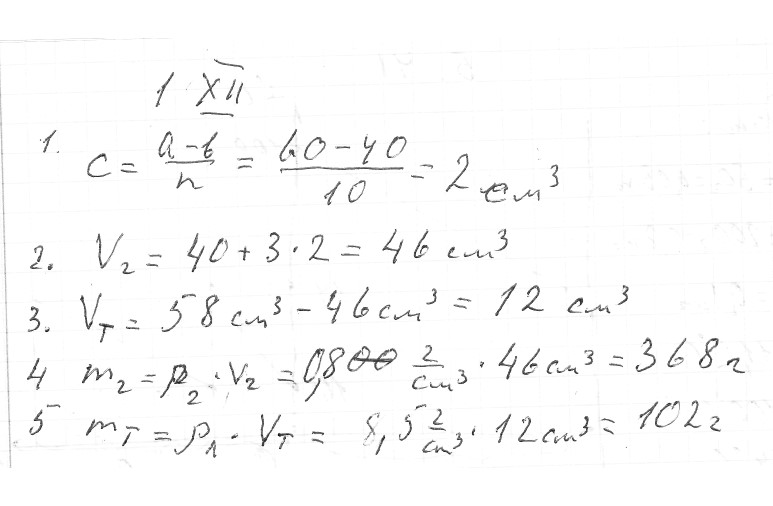 1 XII
1. C = (a-b)/n = (60-40)/10 = 2 см³
2. V₂ = 40 + 3·2 = 46 см³
3. Vт = 58 см³ - 46 см³ = 12 см³
4 m₂ = ρ₂ · V₂ = 0,800 г/см³ · 46 см³ = 368 г
5 mт = ρ₁ · Vт = 8,5 г/см³ · 12 см³ = 102 г